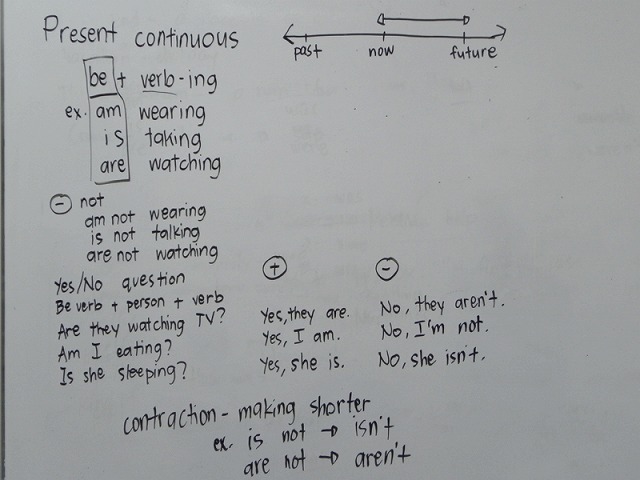 Present continuous
past now future
be + verb-ing
ex. am wearing
is taking
are watching
- not
am not wearing
is not talking
are not watching
Yes/No question
Be verb + person + verb
Are they watching TV?
Am I eating?
Is she sleeping?
+
Yes, they are.
Yes, I am.
Yes, she is.
-
No, they aren't.
No, I'm not.
No, she isn't.
contraction - making shorter
ex. is not → isn't
are not → aren't